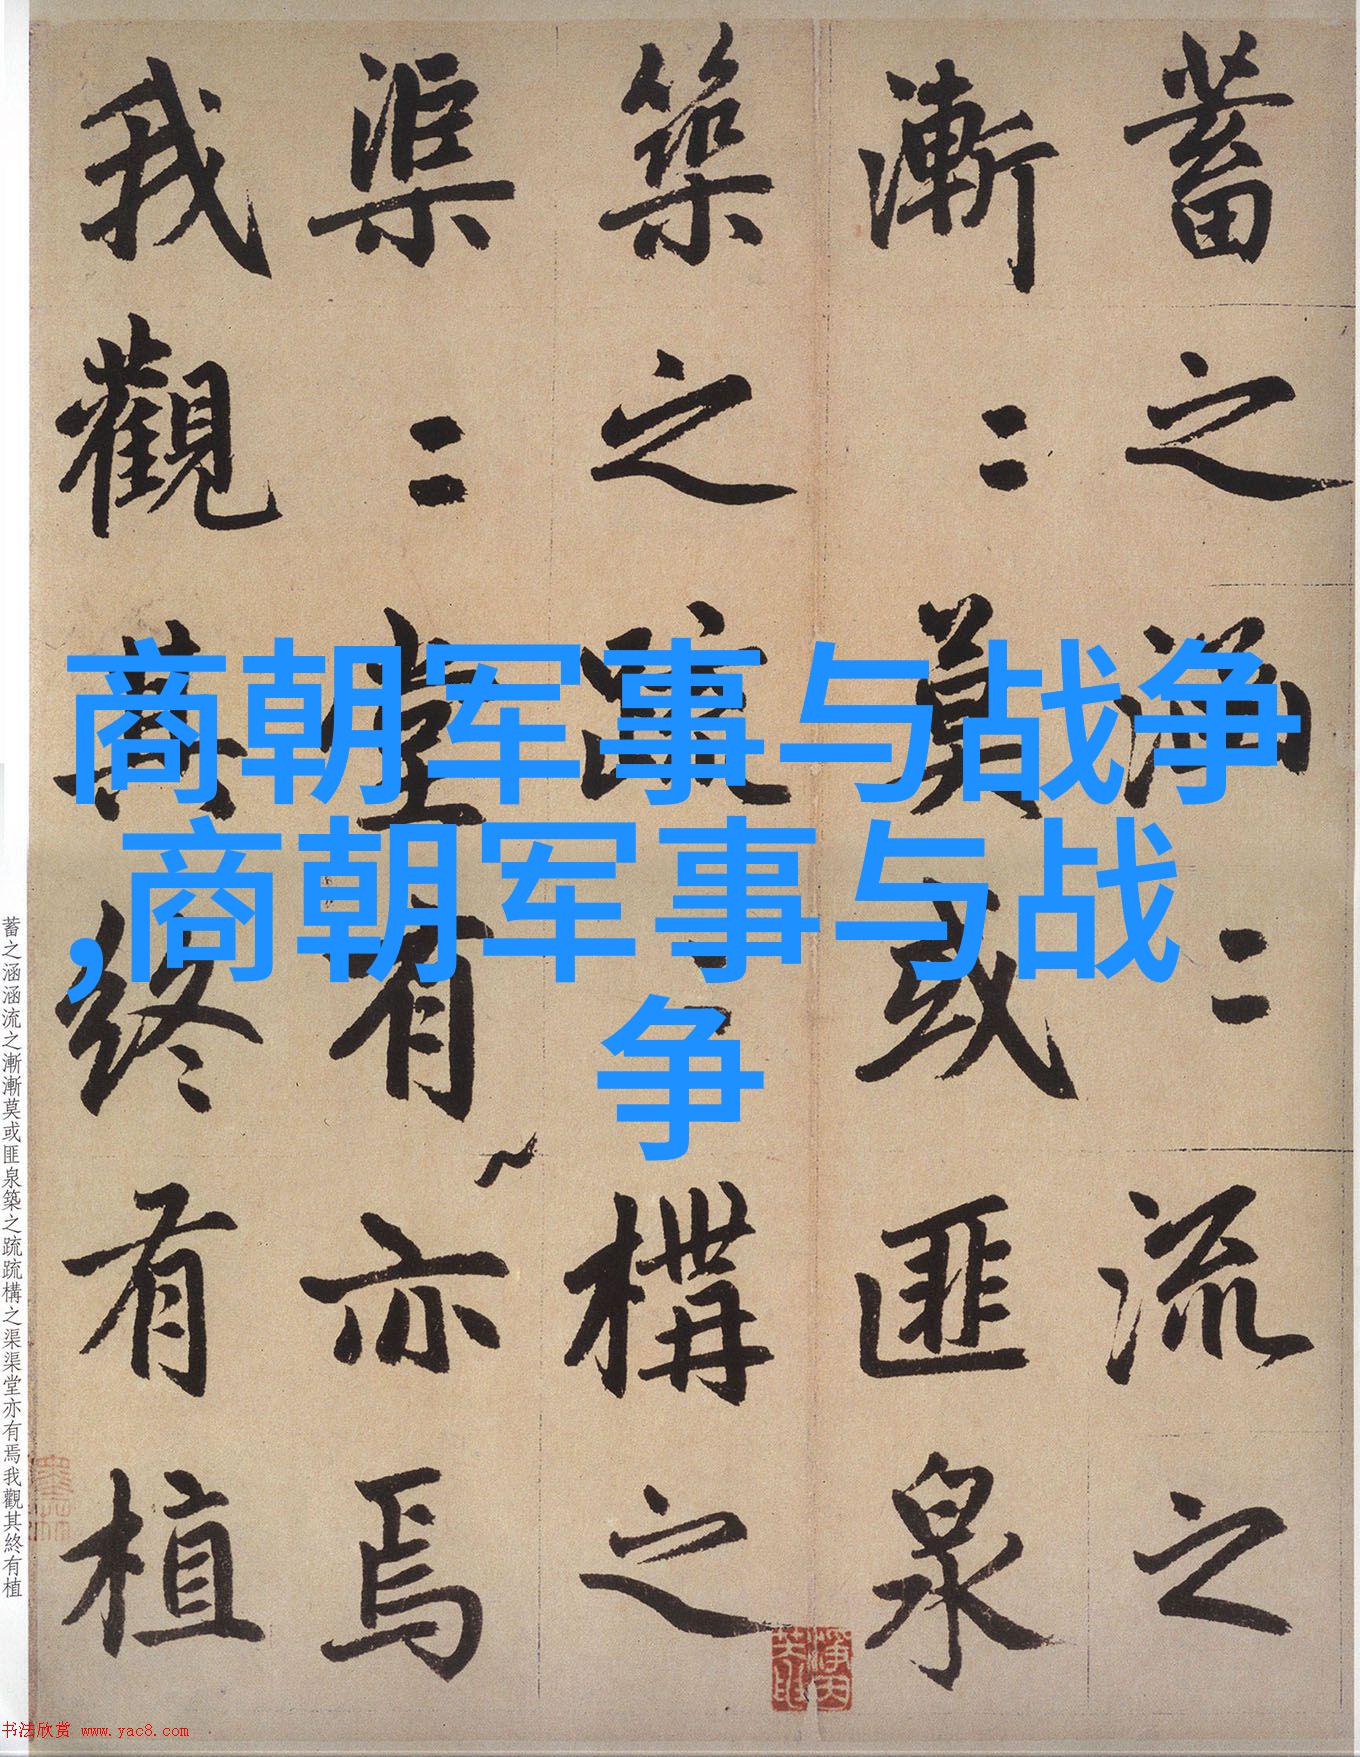 蓄之涵〻流之
漸〻莫或匪泉
築之疏〻構之
渠〻堂有亦焉
我觀其終有植
商朝军事与战争
,商朝军事与战
争
蓄之涵涵流之漸漸莫或匪泉築之疏疏構之渠渠堂亦有焉我觀其終有植
书法欣赏 www.yac8.com